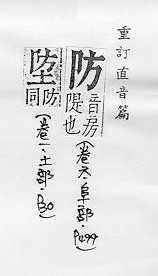 重訂直音篇
防 音房 隄也
(卷六阜部 P499)
埅 同防
(卷一、土部、